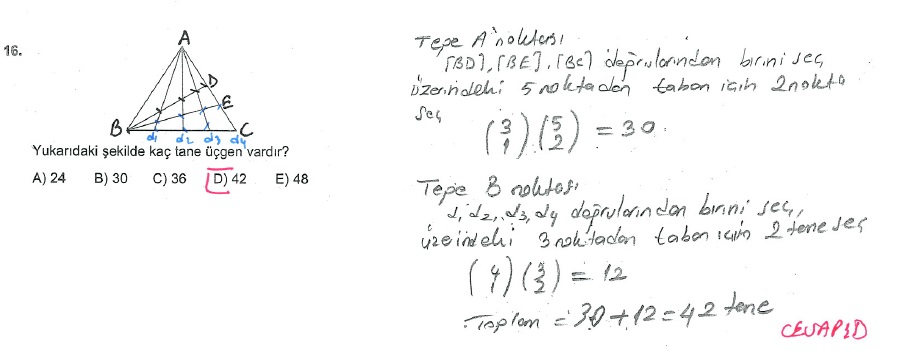 16.
A
D
E
B
C
d1 d2 d3 d4
Yukarıdaki şekilde kaç tane üçgen vardır?
A) 24 B) 30 C) 36 D) 42 E) 48
Tepe A noktası
[BD], [BE], [BC] doğrularından birini seç
üzerindeki 5 noktadan taban için 2 nokta
seç
(3 1) (5 2) = 30
Tepe B noktası
d1, d2, d3, d4 doğrularından birini seç,
üzeindeki 3 noktadan taban için 2 tene seç
(4 1) (3 2) = 12
Toplam = 30 + 12 = 42 tene
CEVAP: D